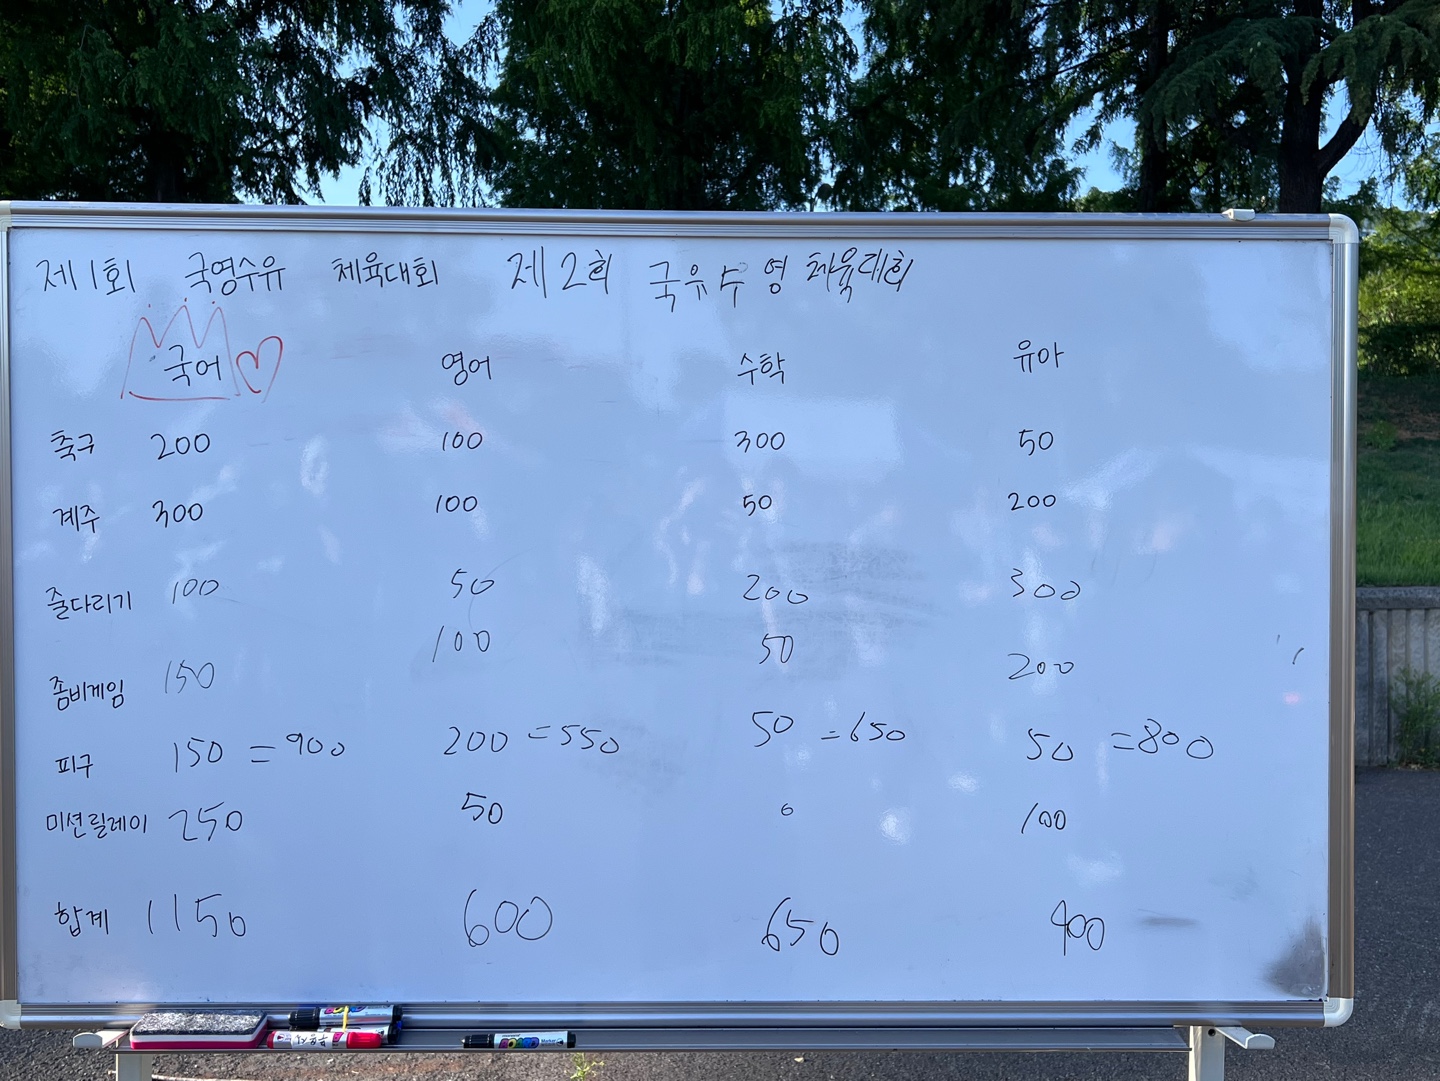 제1회 국영수유 체육대회 제2회 국유수영 체육대회
국어 영어 수학 유아
축구 200 100 300 50
계주 300 100 50 200
줄다리기 100 50 200 300
좀비게임 150 100 50 200
피구 150 =900 200 =550 50 =650 50 =800
미션릴레이 250 50 0 100
합계 1150 600 650 900